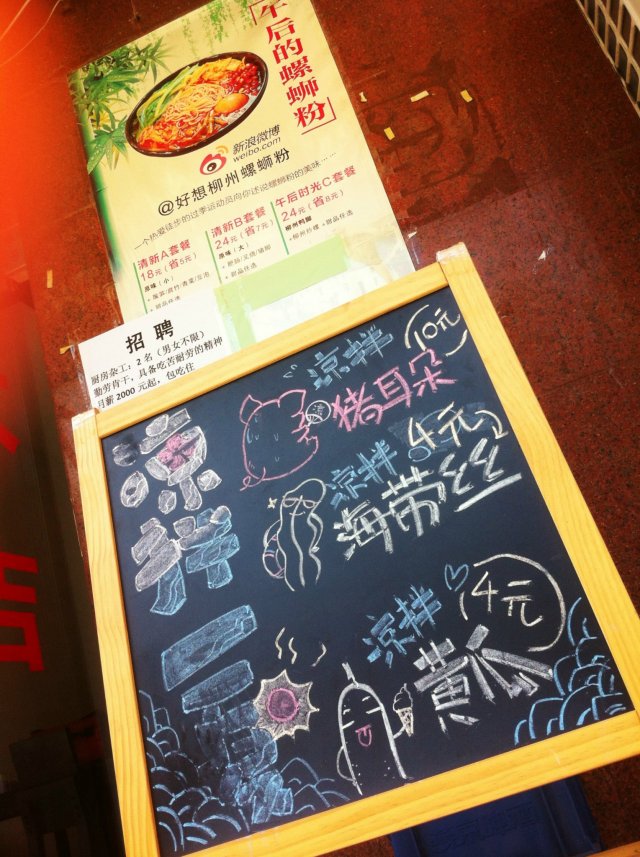 「午后的螺蛳粉」
新浪微博
weibo.com
@好想柳州螺蛳粉
一个热爱徒步的过季运动员向你述说螺蛳粉的美味……
清新A套餐
18元（省5元）
原味（小）
+甜品任选
清新B套餐
24元（省7元）
原味（大）
+甜品任选
午后时光C套餐
24元（省8元）
柳州鸭脚
+柳州炒螺 +甜品任选
招 聘
厨房杂工：2名（男女不限）
勤劳肯干，具备吃苦耐劳的精神
月薪2000元起，包吃住
凉拌
凉拌
10元
猪耳朵
凉拌
4元
海带丝
凉拌
4元
黄瓜